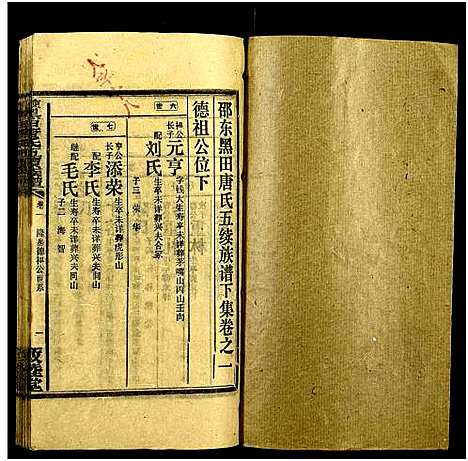 邵东黑田唐氏五续族谱下集卷之一
德祖公位下
六世
祖公长子元亨 字钱大生寿卒未详葬茅嘴山丙山壬向
配刘氏 生寿卒未详葬兴夫台冢
子二 荣 华
七世
亨公长子添荣 生卒未详葬虎形山
配李氏 生寿卒未详葬兴夫同山
继配毛氏 生寿卒未详葬兴夫同山
子二 海 智
卷一 隆岳德祖公世系 一